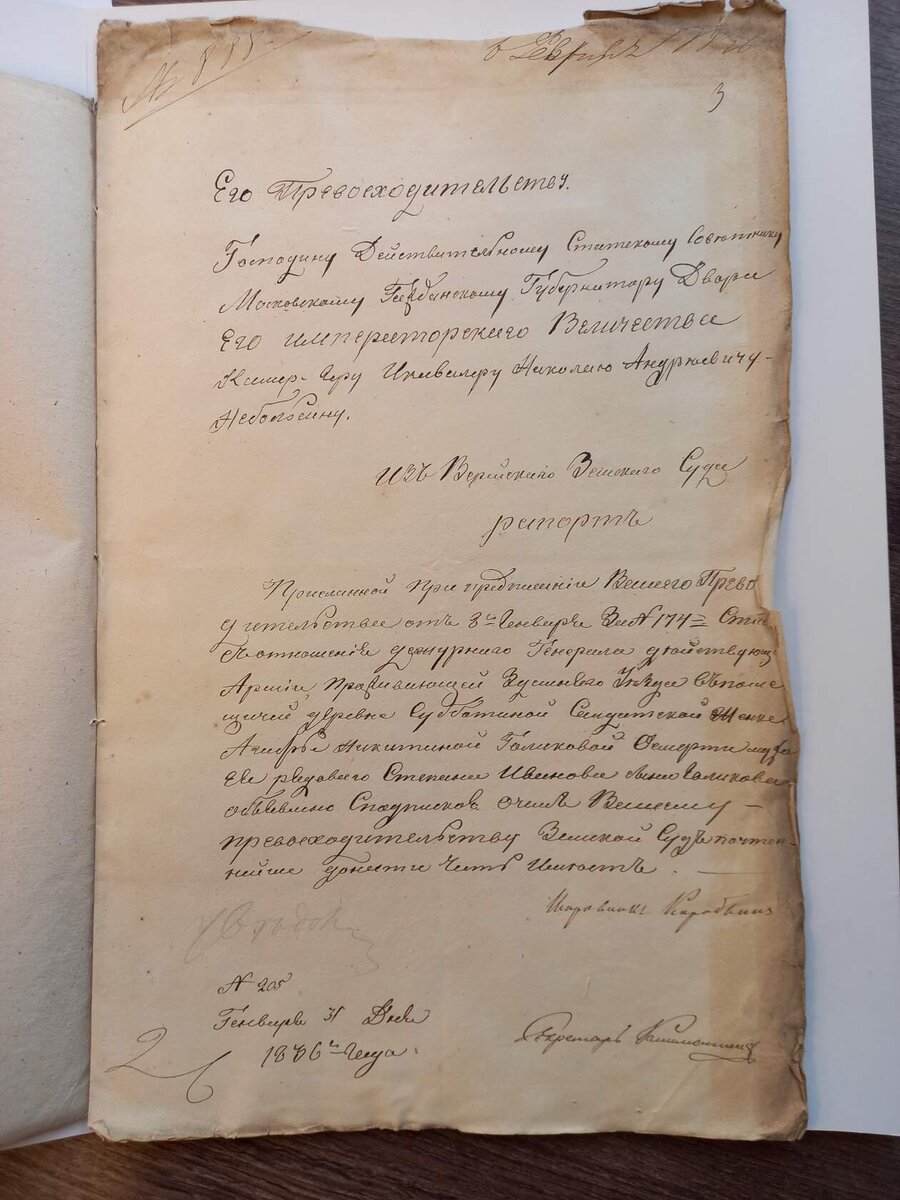 № 888
6 Февраля 1836
3
Его Превосходительству.
Господину Действительному Статскому Совѣтнику
Московскому Гражданскому Губернатору Двора
Его императорского Величества
Камер-Геру Икавалеру Николаю Андрѣевичу
Неболсину.
Изъ Верейскаго Земскаго Суда
рапортъ
Присланной При предписаніи Вашего Прево
дительства отъ 8го Генваря За № 174 =
отношенія дежурнаго Генерала действующ
Арміи, Проживающей Здешняго Уезда въ поме
щичей деревне Субботиной Салдатской Женке
Никитиной Галиковой Осмерти мужа
Ея рядоваго Степана Иванова Галикова
объявлено Сподпискою, очемъ Вашему
превосходительству Земской Судъ почтен-
нейше донести Честь Имеетъ.
№ 205
Генваря 31 Дня
1836го Года
Секретарь
2